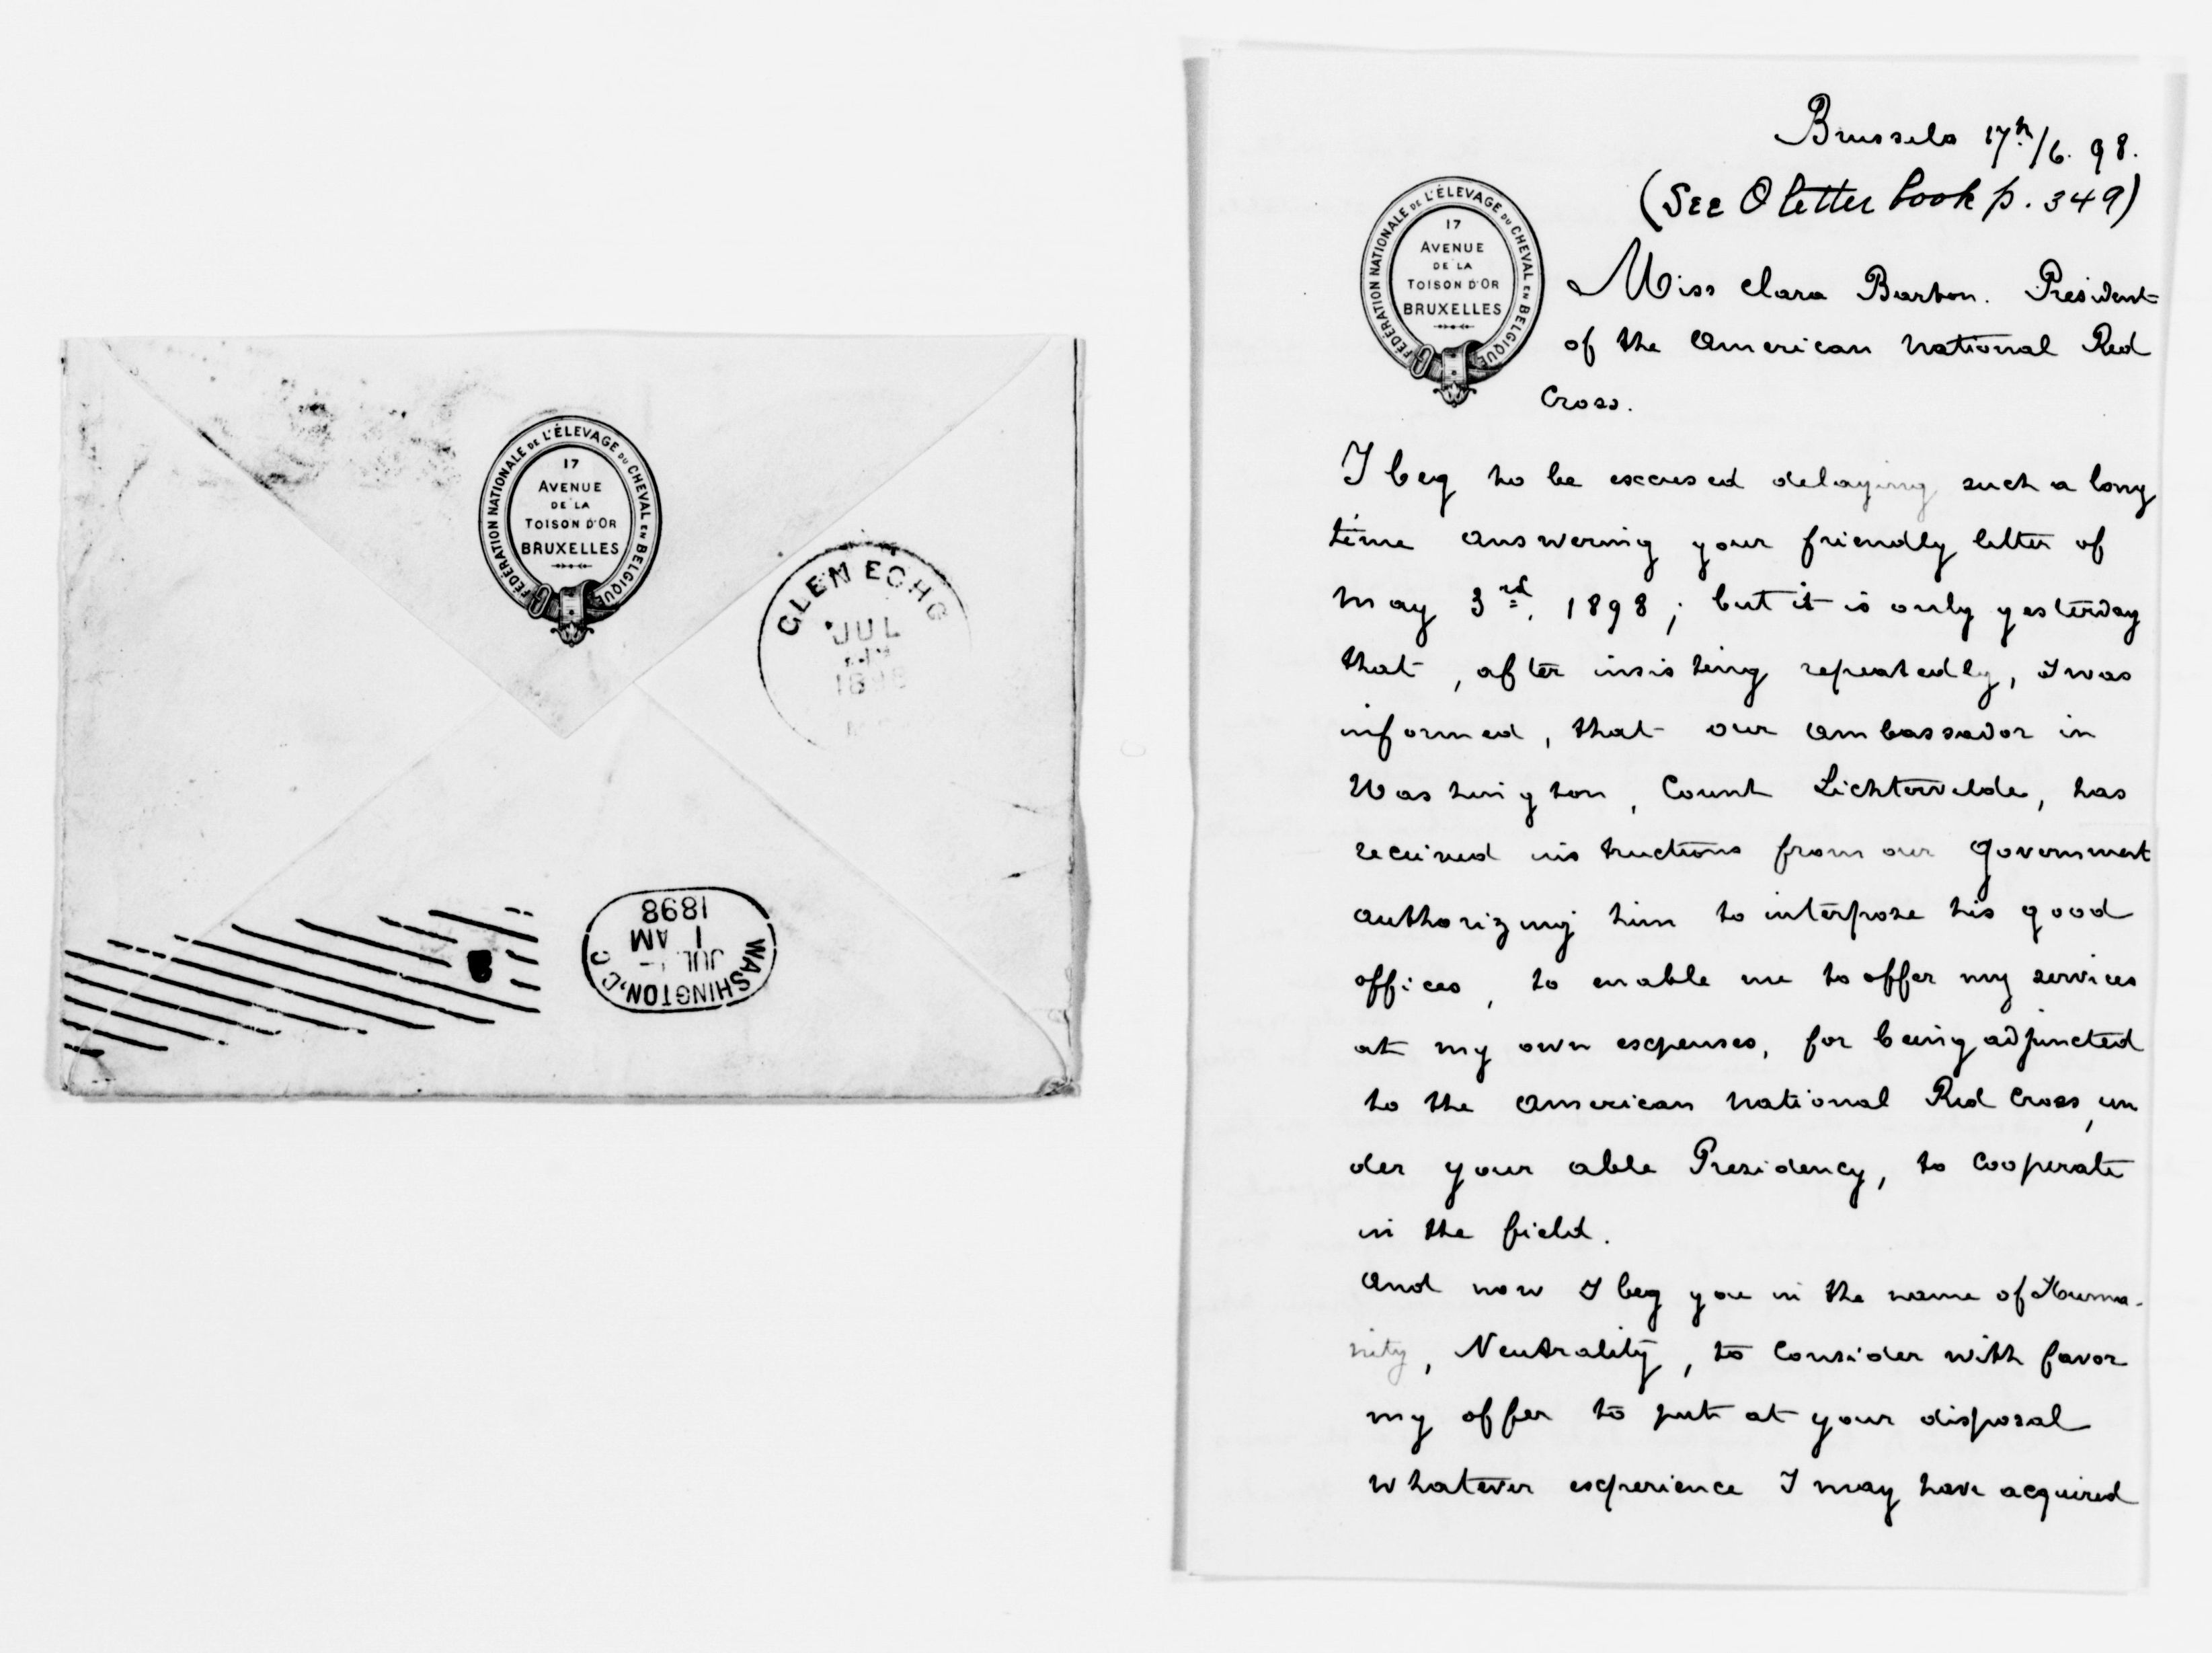 FÉDÉRATION NATIONALE DE L'ÉLEVAGE DU CHEVAL EN BELGIQUE
17
AVENUE
DE LA
TOISON D'OR
BRUXELLES
GLEN ECHO
JUL
1898
WASHINGTON, D.C.
JUL
1 AM
1898
Brussels 17th/6. 98.
(See O letter book p. 349)
FÉDÉRATION NATIONALE DE L'ÉLEVAGE DU CHEVAL EN BELGIQUE
17
AVENUE
DE LA
TOISON D'OR
BRUXELLES
Miss Clara Barton. President
of the American National Red
Cross.
I beg to be excused delaying such a long
time answering your friendly letter of
May 3rd. 1898; but it is only yesterday
that, after insisting repeatedly, I was
informed, that our ambassador in
Washington, Count Lichtervelde, has
received instructions from our Government
authorizing him to interpose his good
offices, to enable me to offer my services
at my own expenses, for being adjuncted
to the American National Red Cross, un
der your able Presidency, to cooperate
in the field.
And now I beg you in the name of Huma-
nity, Neutrality, to consider with favor
my offer to put at your disposal
whatever experience I may have acquired